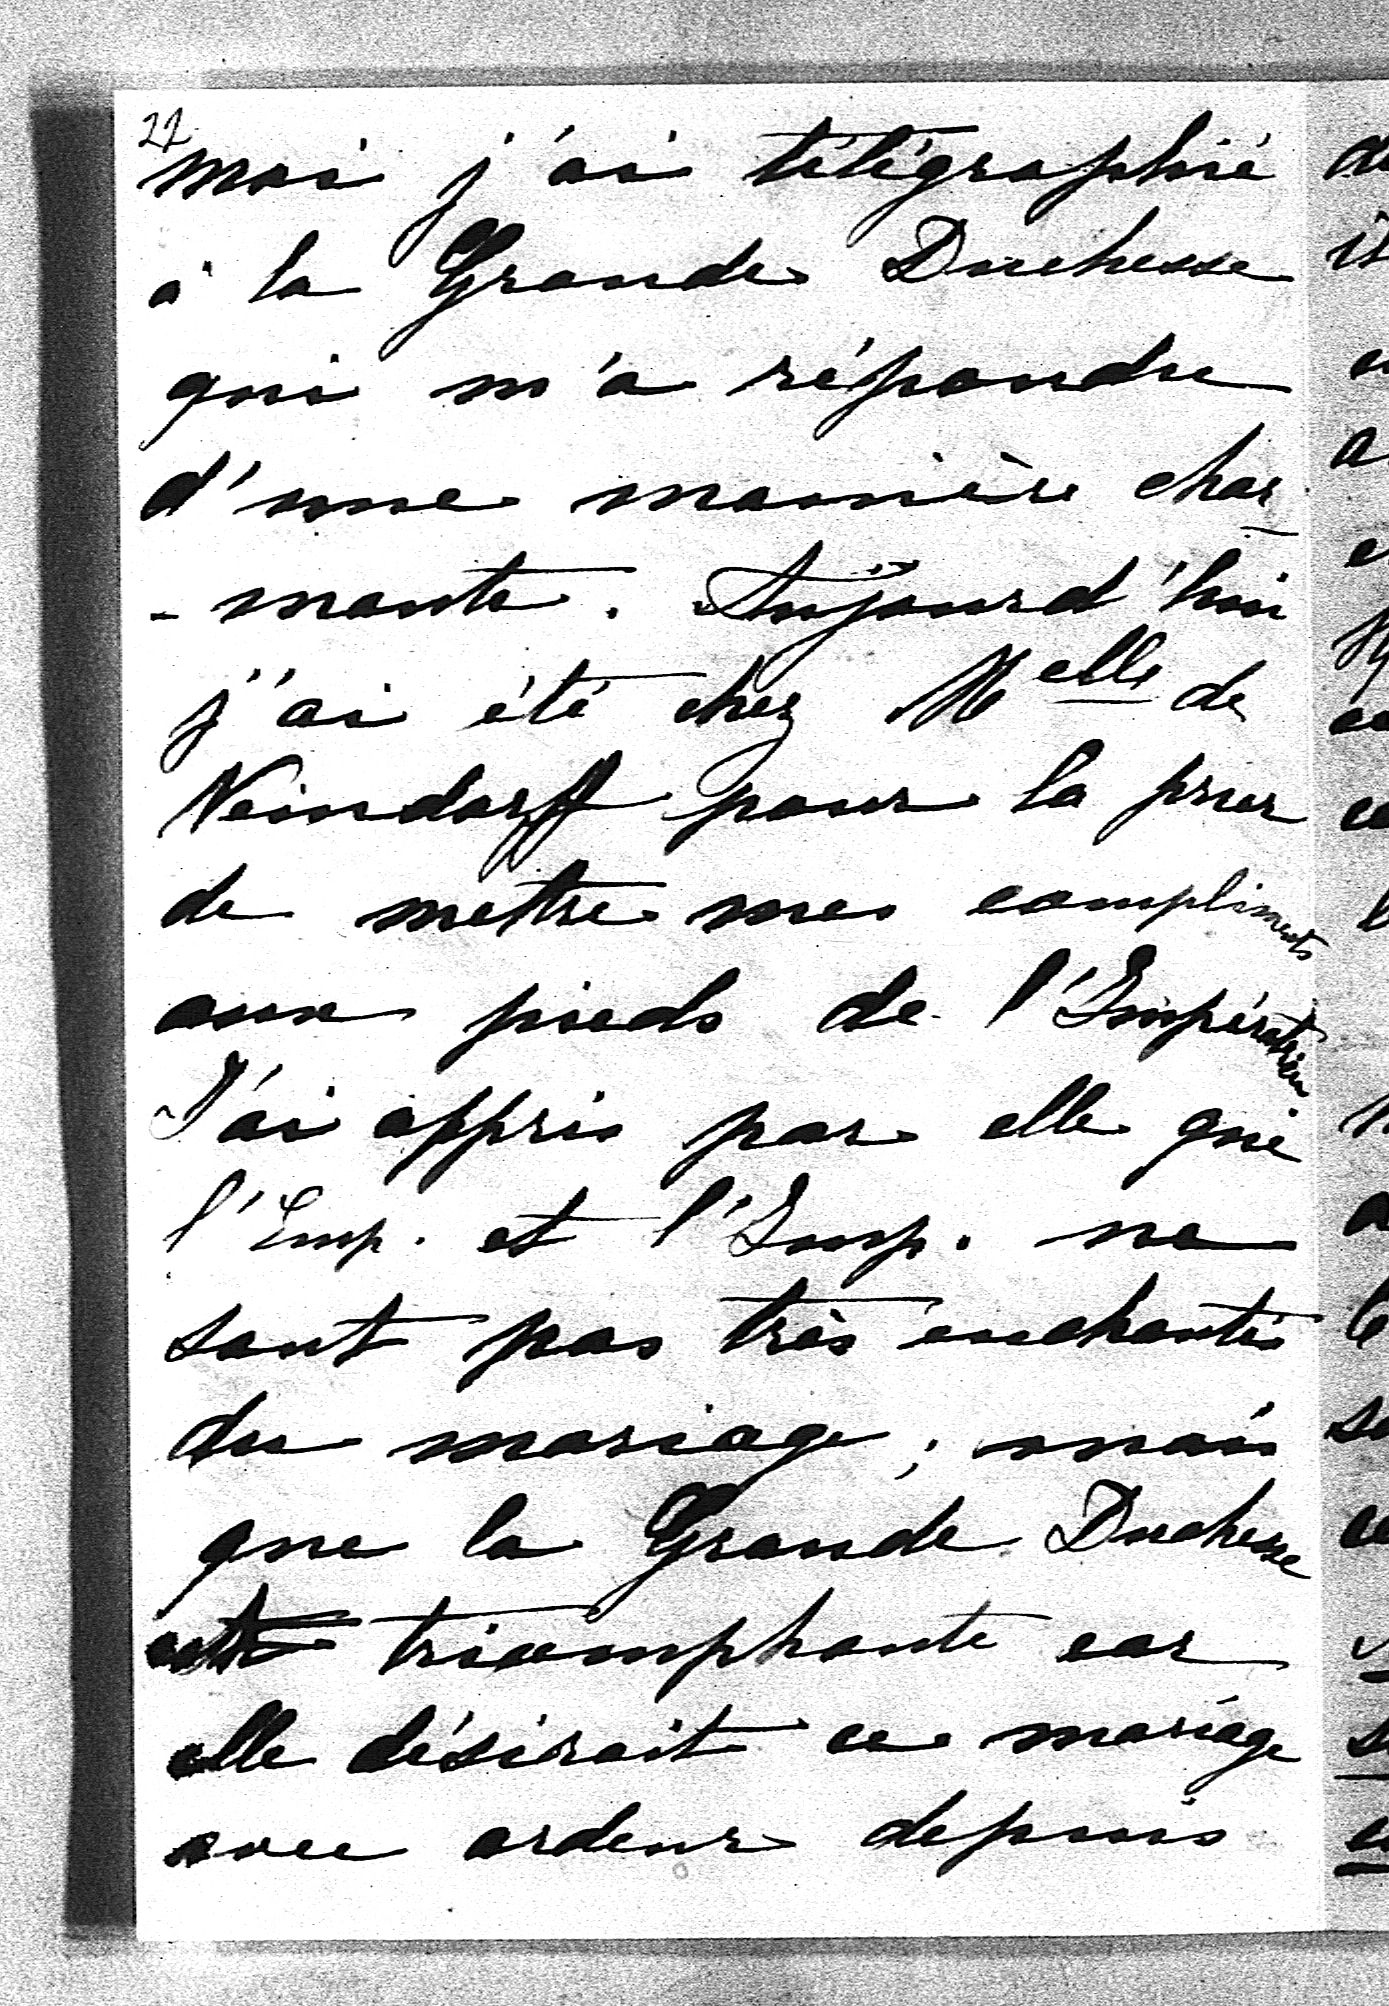 22
moi j'ai télégraphié
à la Grande Duchesse
qui m'a répondu
d'une manière char
- mante. Aujourd'hui
j'ai été chez Melle de
Neindorff pour la prier
de mettre mes compliments
aux pieds de l'Impératrice
J'ai appris par elle que
l'Emp. et l'Imp. ne
sont pas très enchantés
du mariage; mais
que la Grande Duchesse
est triomphante car
elle désirait ce mariage
avec ardeur depuis